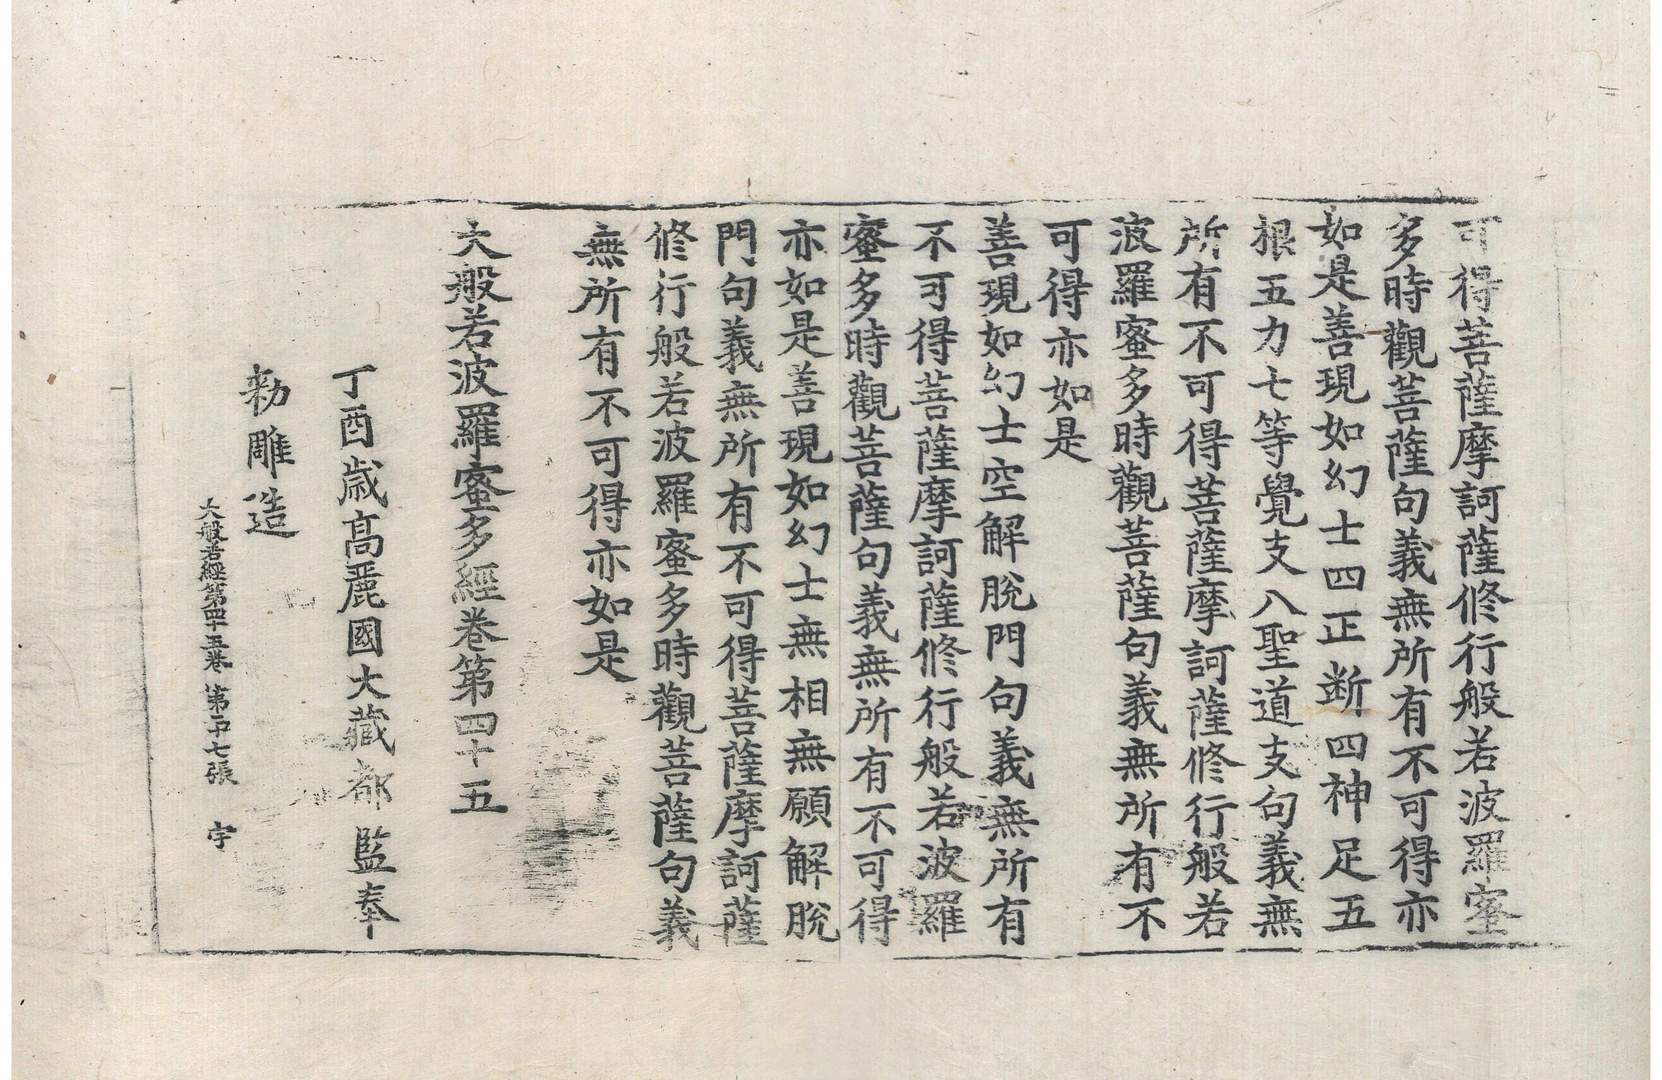 可得菩薩摩訶薩修行般若波羅蜜
多時觀菩薩句義無所有不可得亦
如是善現如幻士四正斷四神足五
根五力七等覺支八聖道支句義無
所有不可得菩薩摩訶薩修行般若
波羅蜜多時觀菩薩句義無所有不
可得亦如是
善現如幻士空解脫門句義無所有
不可得菩薩摩訶薩修行般若波羅
蜜多時觀菩薩句義無所有不可得
亦如是善現如幻士無相無願解脫
門句義無所有不可得菩薩摩訶薩
修行般若波羅蜜多時觀菩薩句義
無所有不可得亦如是
大般若波羅蜜多經卷第四十五
丁酉歲高麗國大藏都監奉
勑雕造
大般若經第四十五卷 第二十七張 宇